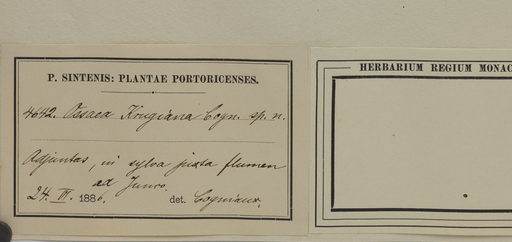 P. SINTENIS: PLANTAE PORTORICENSES.
4642. Ossaea Krugiana Cogn. sp. n.
Adjuntas, in sylva juxta flumen
ad Junco.
24. VI. 1886. det. Cogniaux.
HERBARIUM REGIUM MONAC